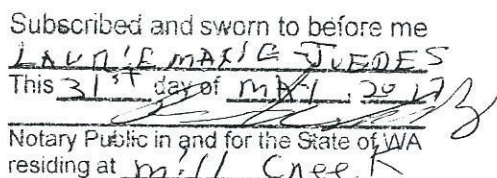 Subscribed and sworn to before me
LAURIE MARIE JUEDES
This 31st day of MAY, 2017
Notary Public in and for the State of WA
residing at Mill Creek